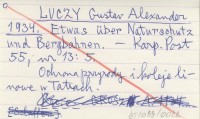 LUCZY Gustav Alexander
1934. Etwas über Naturschutz
und Bergbahnen. — Karp. Post
55, nr. 13: 5.
Ochrona przyrody i koleje li-
nowe w Tatrach.